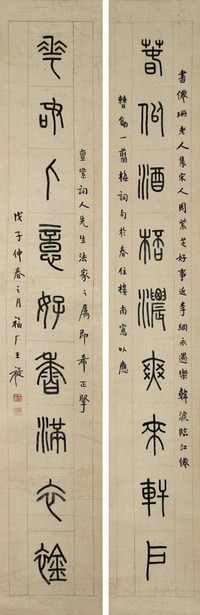 春似酒桮濃爽來軒戶
書僊珊老人集宋人周紫芝好事近李綱永遇樂韓淲臨江僊
曹勛一翦梅詞句於春住樓南窗以應
詞人先生法家之屬即希正擘
人意好香滿衣
戊子仲春之月福厂王禔